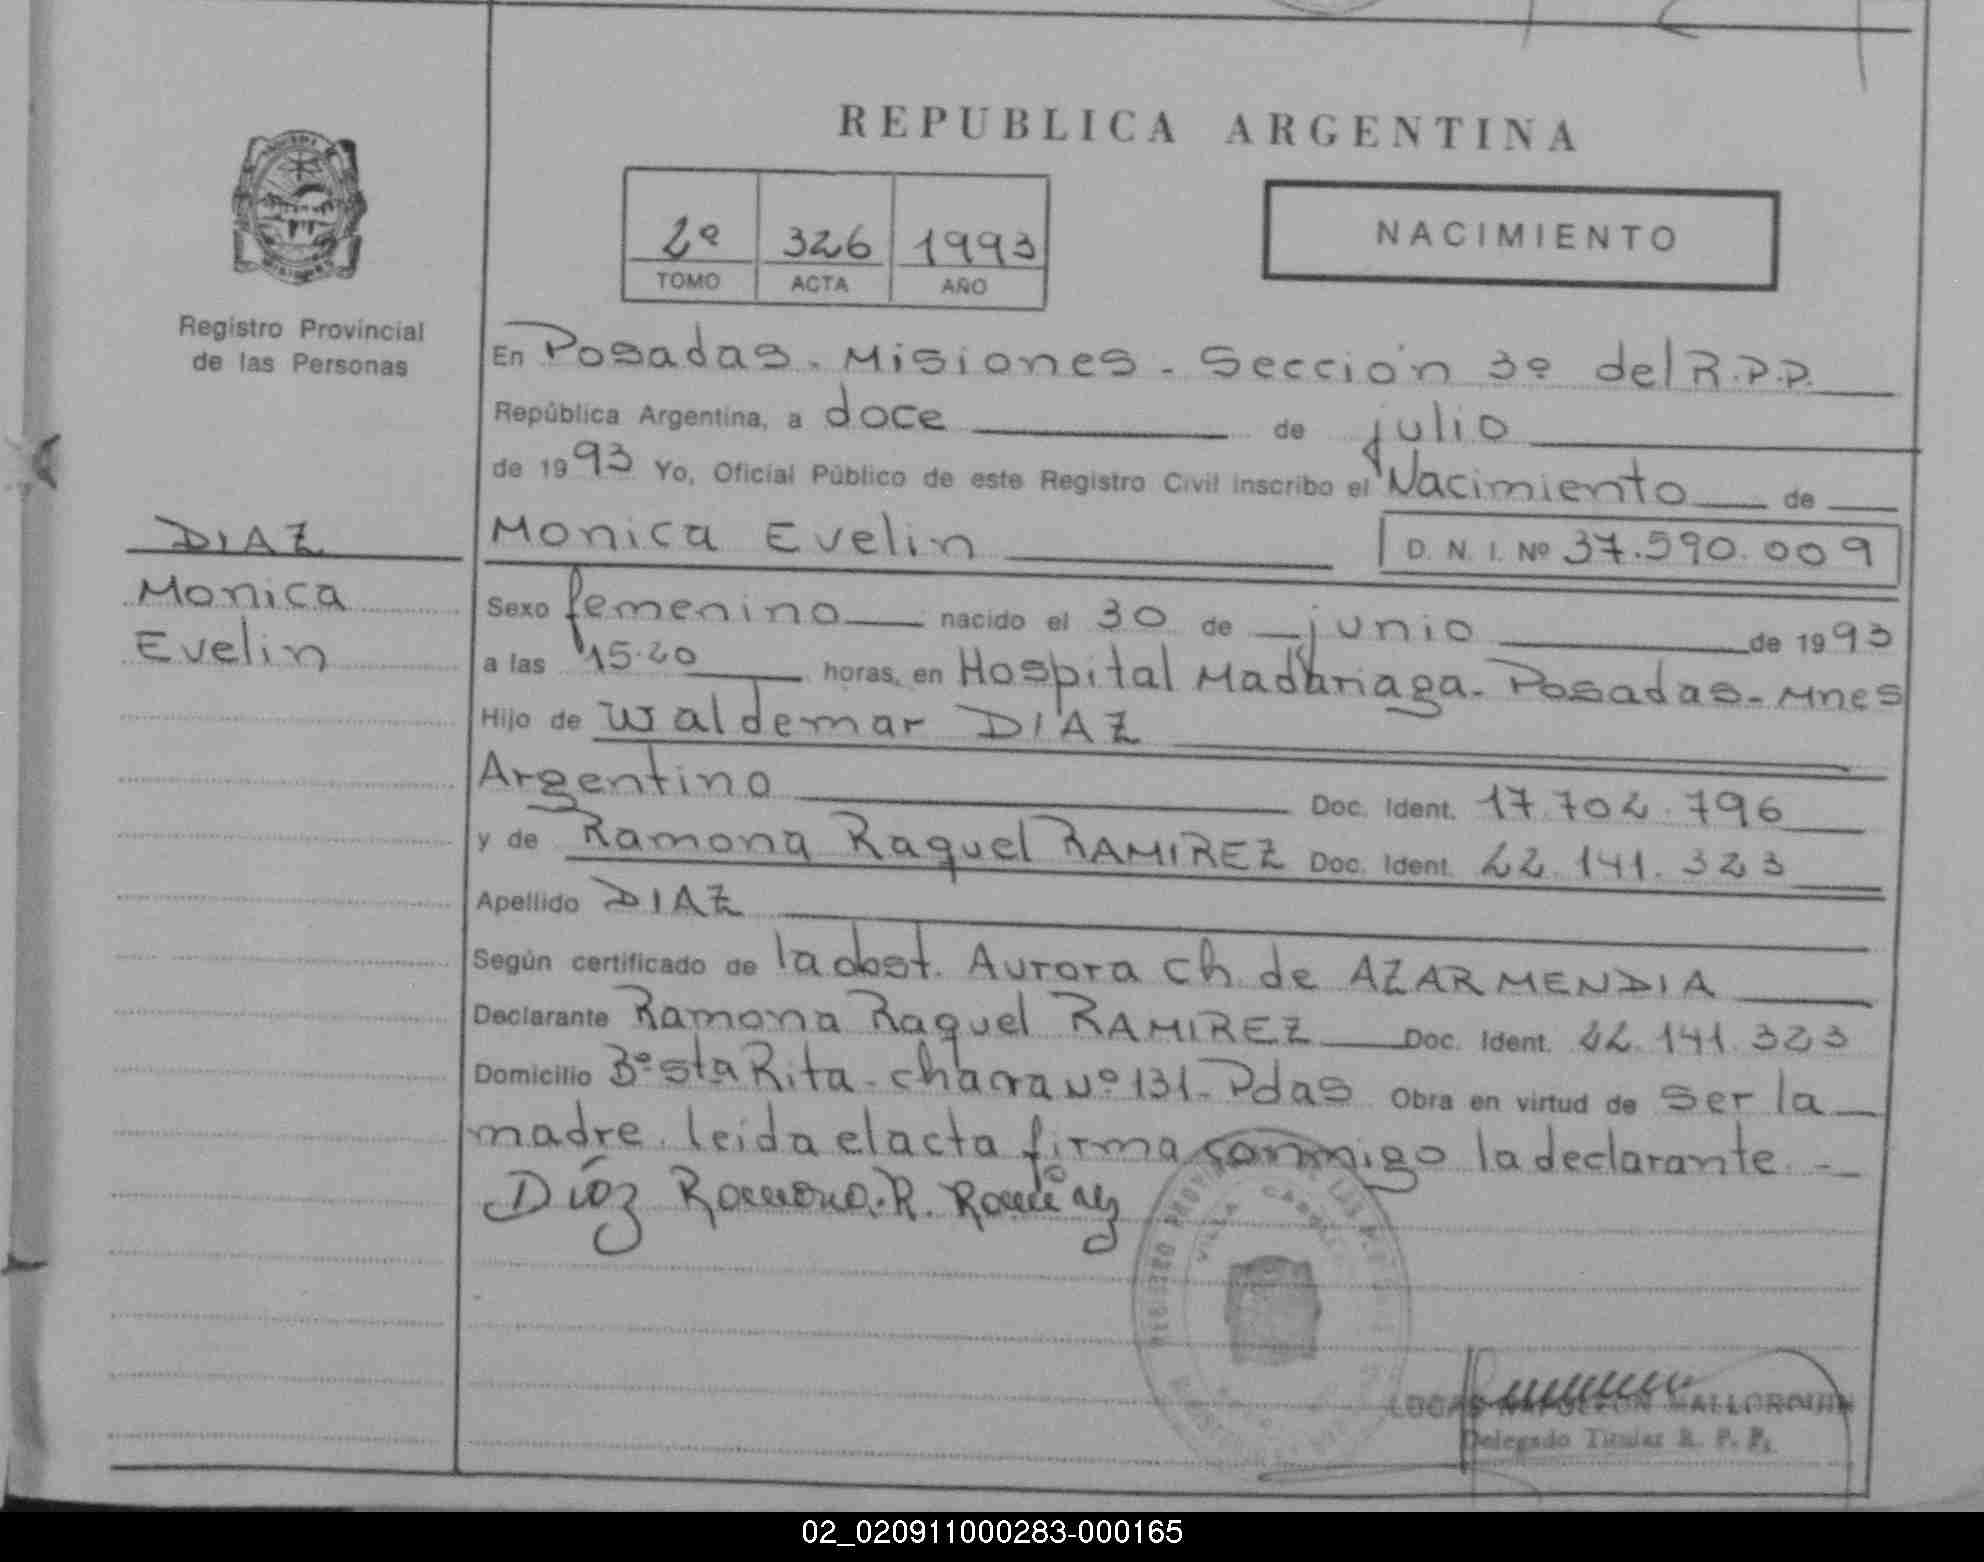 REPUBLICA ARGENTINA
2º 326 1993
TOMO ACTA AÑO
NACIMIENTO
Registro Provincial
de las Personas
DIAZ
Monica
Evelin
En Posadas - Misiones - Sección 3º del R.P.P.
República Argentina, a doce de julio
de 1993 Yo, Oficial Público de este Registro Civil inscribo el Nacimiento de
Monica Evelin D. N. I. Nº 37.590.009
Sexo femenino nacido el 30 de junio de 1993
a las 15.20 horas, en Hospital Madariaga - Posadas - Mnes
Hijo de Waldemar DIAZ
Argentino Doc. Ident. 17.702.796
y de Ramona Raquel RAMIREZ Doc. Ident. 22.141.323
Apellido DIAZ
Según certificado de la obst. Aurora Ch. de AZARMENDIA
Declarante Ramona Raquel RAMIREZ Doc. Ident. 22.141.323
Domicilio Bº Sta Rita - chacra Nº 131 - Pdas Obra en virtud de ser la
madre. leida el acta firma conmigo la declarante. -
Díaz Ramona. R. Ramírez
VILLA
LUCAS NAPOLEON MALLORQUIN
Delegado Titular R. P. P.
02_020911000283-000165